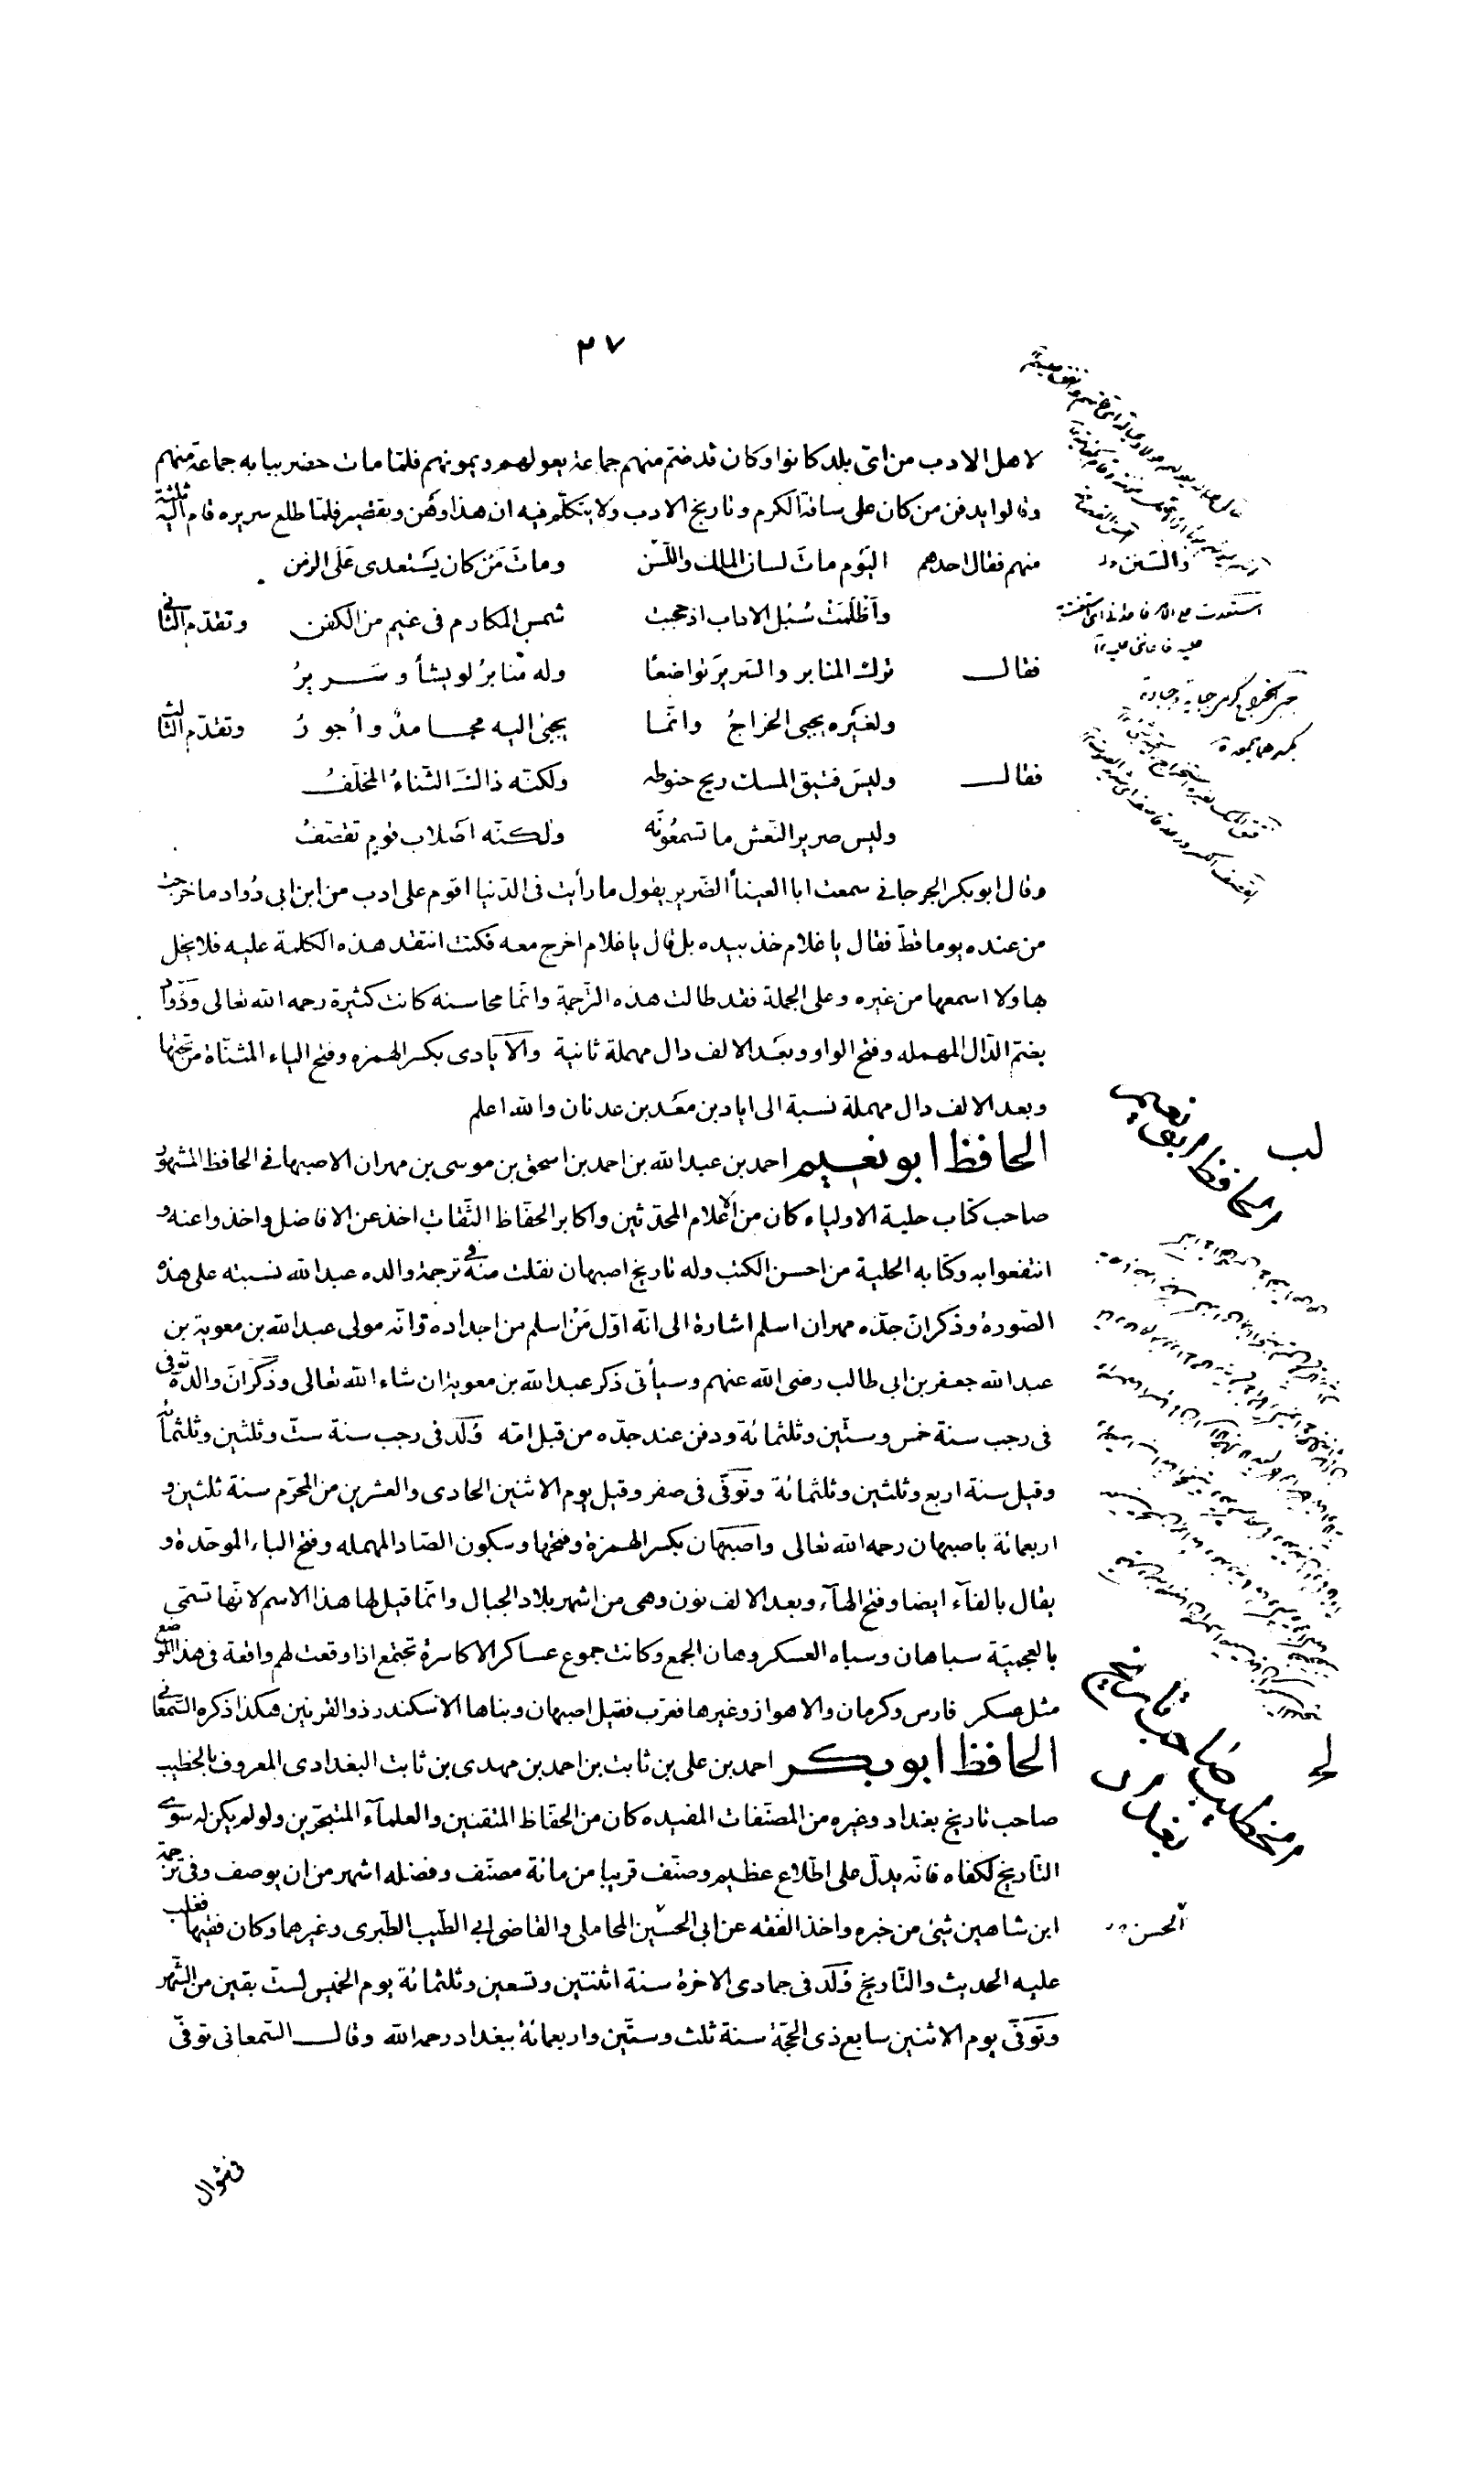 ٣٧
لاهل الادب من اىّ بلد كانوا وكان قد ضمّ منهم جماعة يعولهم ويمونهم فلمّا مات حضر ببابه جماعة منهم
وقالوا يدفن من كان على ساقة الكرم وتاريخ الادب ولا يتكلّم فيه ان هذا وَهْن وتقصير فلمّا طلع سريره قام اليه ثلثة
منهم فقال احدهم اليَوم ماتَ لسان الملك واللّسَن وماتَ مَنْ كان يَسْتعدى عَلَى الزمن
وَاَظْلَمَتْ سُبُل الاداب اذ حجبت شمس المكارم فى غيم من الكفن وتقدّم الثانى
فقال ترك المنابر والسّريرَ تواضعًا وله منابرُ لو يشأ وسَريرُ
ولغَيْره يجبى الخراجُ وانّما يجبٰى اليه محامدٌ واُجورُ وتقدّم الثالث
فقال وليسَ فتيق المسك ريح حنوطه ولكنّه ذاك الثّناءُ المخلّفُ
وليس صرير النّعش ما تسمعُونَه ولكنّه اصْلاب قوم تقصّفُ
وقال ابو بكر الجرجانى سمعت ابا العيناأ الضّرير يقول ما رأيت فى الدّنيا اقوم على ادب من ابن ابى دُواد ما خرجت
من عنده يوما قطّ فقال يا غلام خذ بيده بل قال يا غلام اخرج معه فكنت انتقد هذه الكلمة عليه فلا يخل
بها ولا اسمعها من غيره وعلى الجملة فقد طالت هذه التّرجمة وانّما محاسنه كانت كثيرة رحمه الله تعالى ودُواد
بضمّ الدّال المهمله وفتح الواو وبعَد الالف دال مهملة ثانية والاَيادى بكسر الهمزه وفتح الياء المثنّاة من تحتها
وبعد الالف دال مهملة نسبة الى اياد بن معَد بن عدنان والله اعلم
الحافظ ابو نعيم احمد بن عبد الله بن احمد بن اسحق بن موسى بن مهران الاصبهانى الحافظ المشهور
صاحب كتاب حلية الاولياء كان من الاعلام المحدّثين واكابر الحفّاظ الثّقات اخذ عن الافاضل واخذوا عنه و
انتفعوا به وكتابه الحلية من احسن الكتب وله تاريخ اصبهان نقلت منه فى ترجمة والده عبد الله نسبته على هذه
الصّورة وذكر انّ جدّه مهران اسلم اشارة الى انّه اوّل مَنْ اسلم من اجداده وانّه مولى عبد الله بن معوية بن
عبد الله جعفر بن ابى طالب رضى الله عنهم وسيأتى ذكر عبد الله بن معوية ان شاء الله تعالى وذكر انّ والده توفى
فى رجب سنة خمس وستّين وثلثمائة ودفن عند جدّه من قبل امّه وُلدَ فى رجب سنة ستّ وثلثين وثلثمائة
وقيل سنة اربع وثلثين وثلثمائة وتوفّى فى صفر وقيل يوم الاثنين الحادى والعشرين من المحرّم سنة ثلثين و
اربعمائة باصبهان رحمه الله تعالى واصبَهان بكسر الهمزة وفتحها وسكون الصّاد المهمله وفتح الباء الموحّدة و
يقال بالفآء ايضا وفتح الهآء وبعد الالف نون وهى من اشهر بلاد الجبال وانّما قيل لها هذا الاسم لانّها تسمّى
بالعجميّة سباهان وسباه العسكر وهان الجمع وكانت جموع عساكر الاكاسرة تجتمع اذا وقعت لهم واقعة فى هذا الموضع
مثل عسكر فارس وكرمان والاهواز وغيرها فعرّب فقيل اصبهان وبناها الاسكندر ذو القرنين هكذا ذكره السّمعانى
الحافظ ابو بكر احمد بن على بن ثابت بن احمد بن مهدى بن ثابت البغدادى المعروف بالخطيب
صاحب تاريخ بغداد وغيره من المصنّفات المفيده كان من الحفّاظ المتقنين والعلمآء المتبحّرين ولو لم يكن له سوى
التّاريخ لكفاه فانّه يدلّ على اطّلاع عظيم وصنّف قريبا من مائة مصنّف وفضله اشهر من ان يوصف وفى ترجمة
ابن شاهين شئ من خبره واخذ الفقه عن ابى الحسين المحاملى والقاضى ابى الطّيب الطّبرى وغيرهما وكان فقيها فغلب
عليه الحديث والتّاريخ وُلدَ فى جمادى الاخرة سنة اثنتين وتسعين وثلثمائة يوم الخميس لستّ بقين من الشّهر
وتوَفّى يوم الاثنين سابع ذى الحجّة سنة ثلث وستّين واربعمائة ببغداد رحمه الله وقال السّمعانى توفّى
فى شوال
لب
الحافظ ابى نعيم
لج
الخطيب صاحب تاريخ
بغداد
الحسن